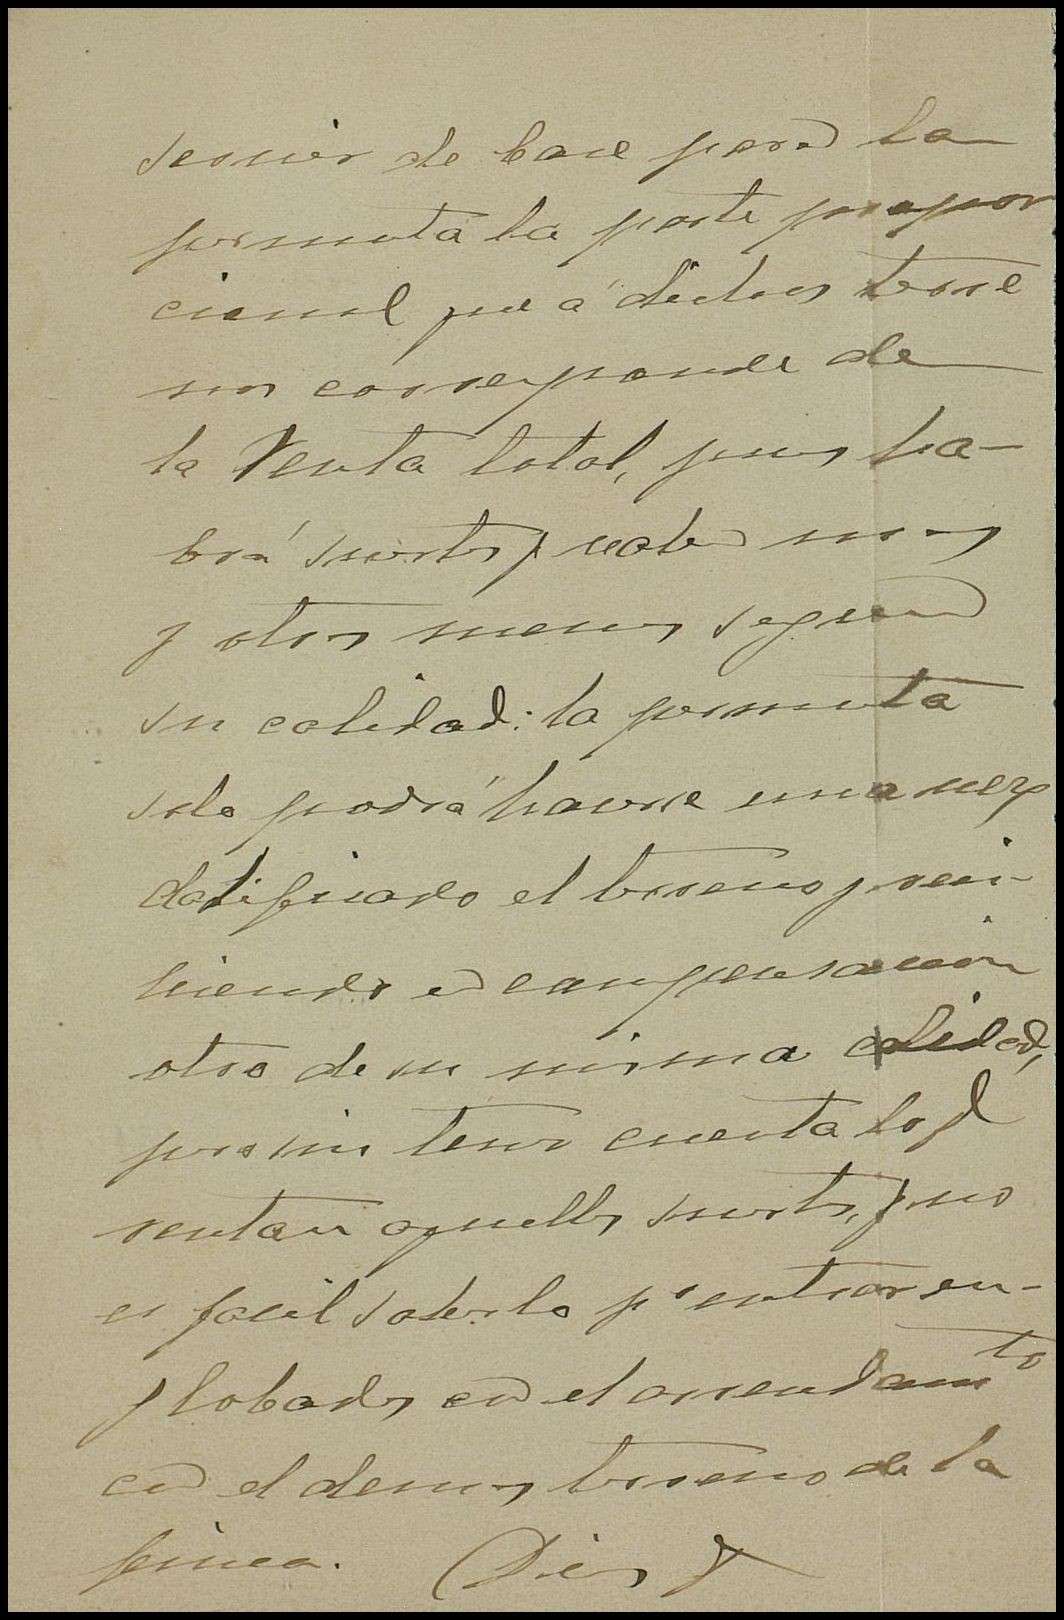 servir de base para la
permuta la parte propor
cional que á dichos terre
nos corresponde de
la Renta total, pues ha-
brá suertes q valen mas
y otras menos segun
su calidad: la permuta
solo podrá hacerse una vez
clasificado el terreno y reci-
biendo en compensacion
otro de su misma calidad,
pero sin tener cuenta lo q
rentan aquellas suertes, q no
es facil saberlo pr entrar en-
globadas en el arrendamto
con el demas terreno de la
finca. Dios